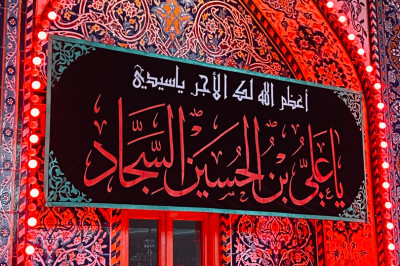 أعظم الله لك الأجر ياسيدي
يا عَلِيُّ بْنُ الحُسَيْن السَّجَّاد